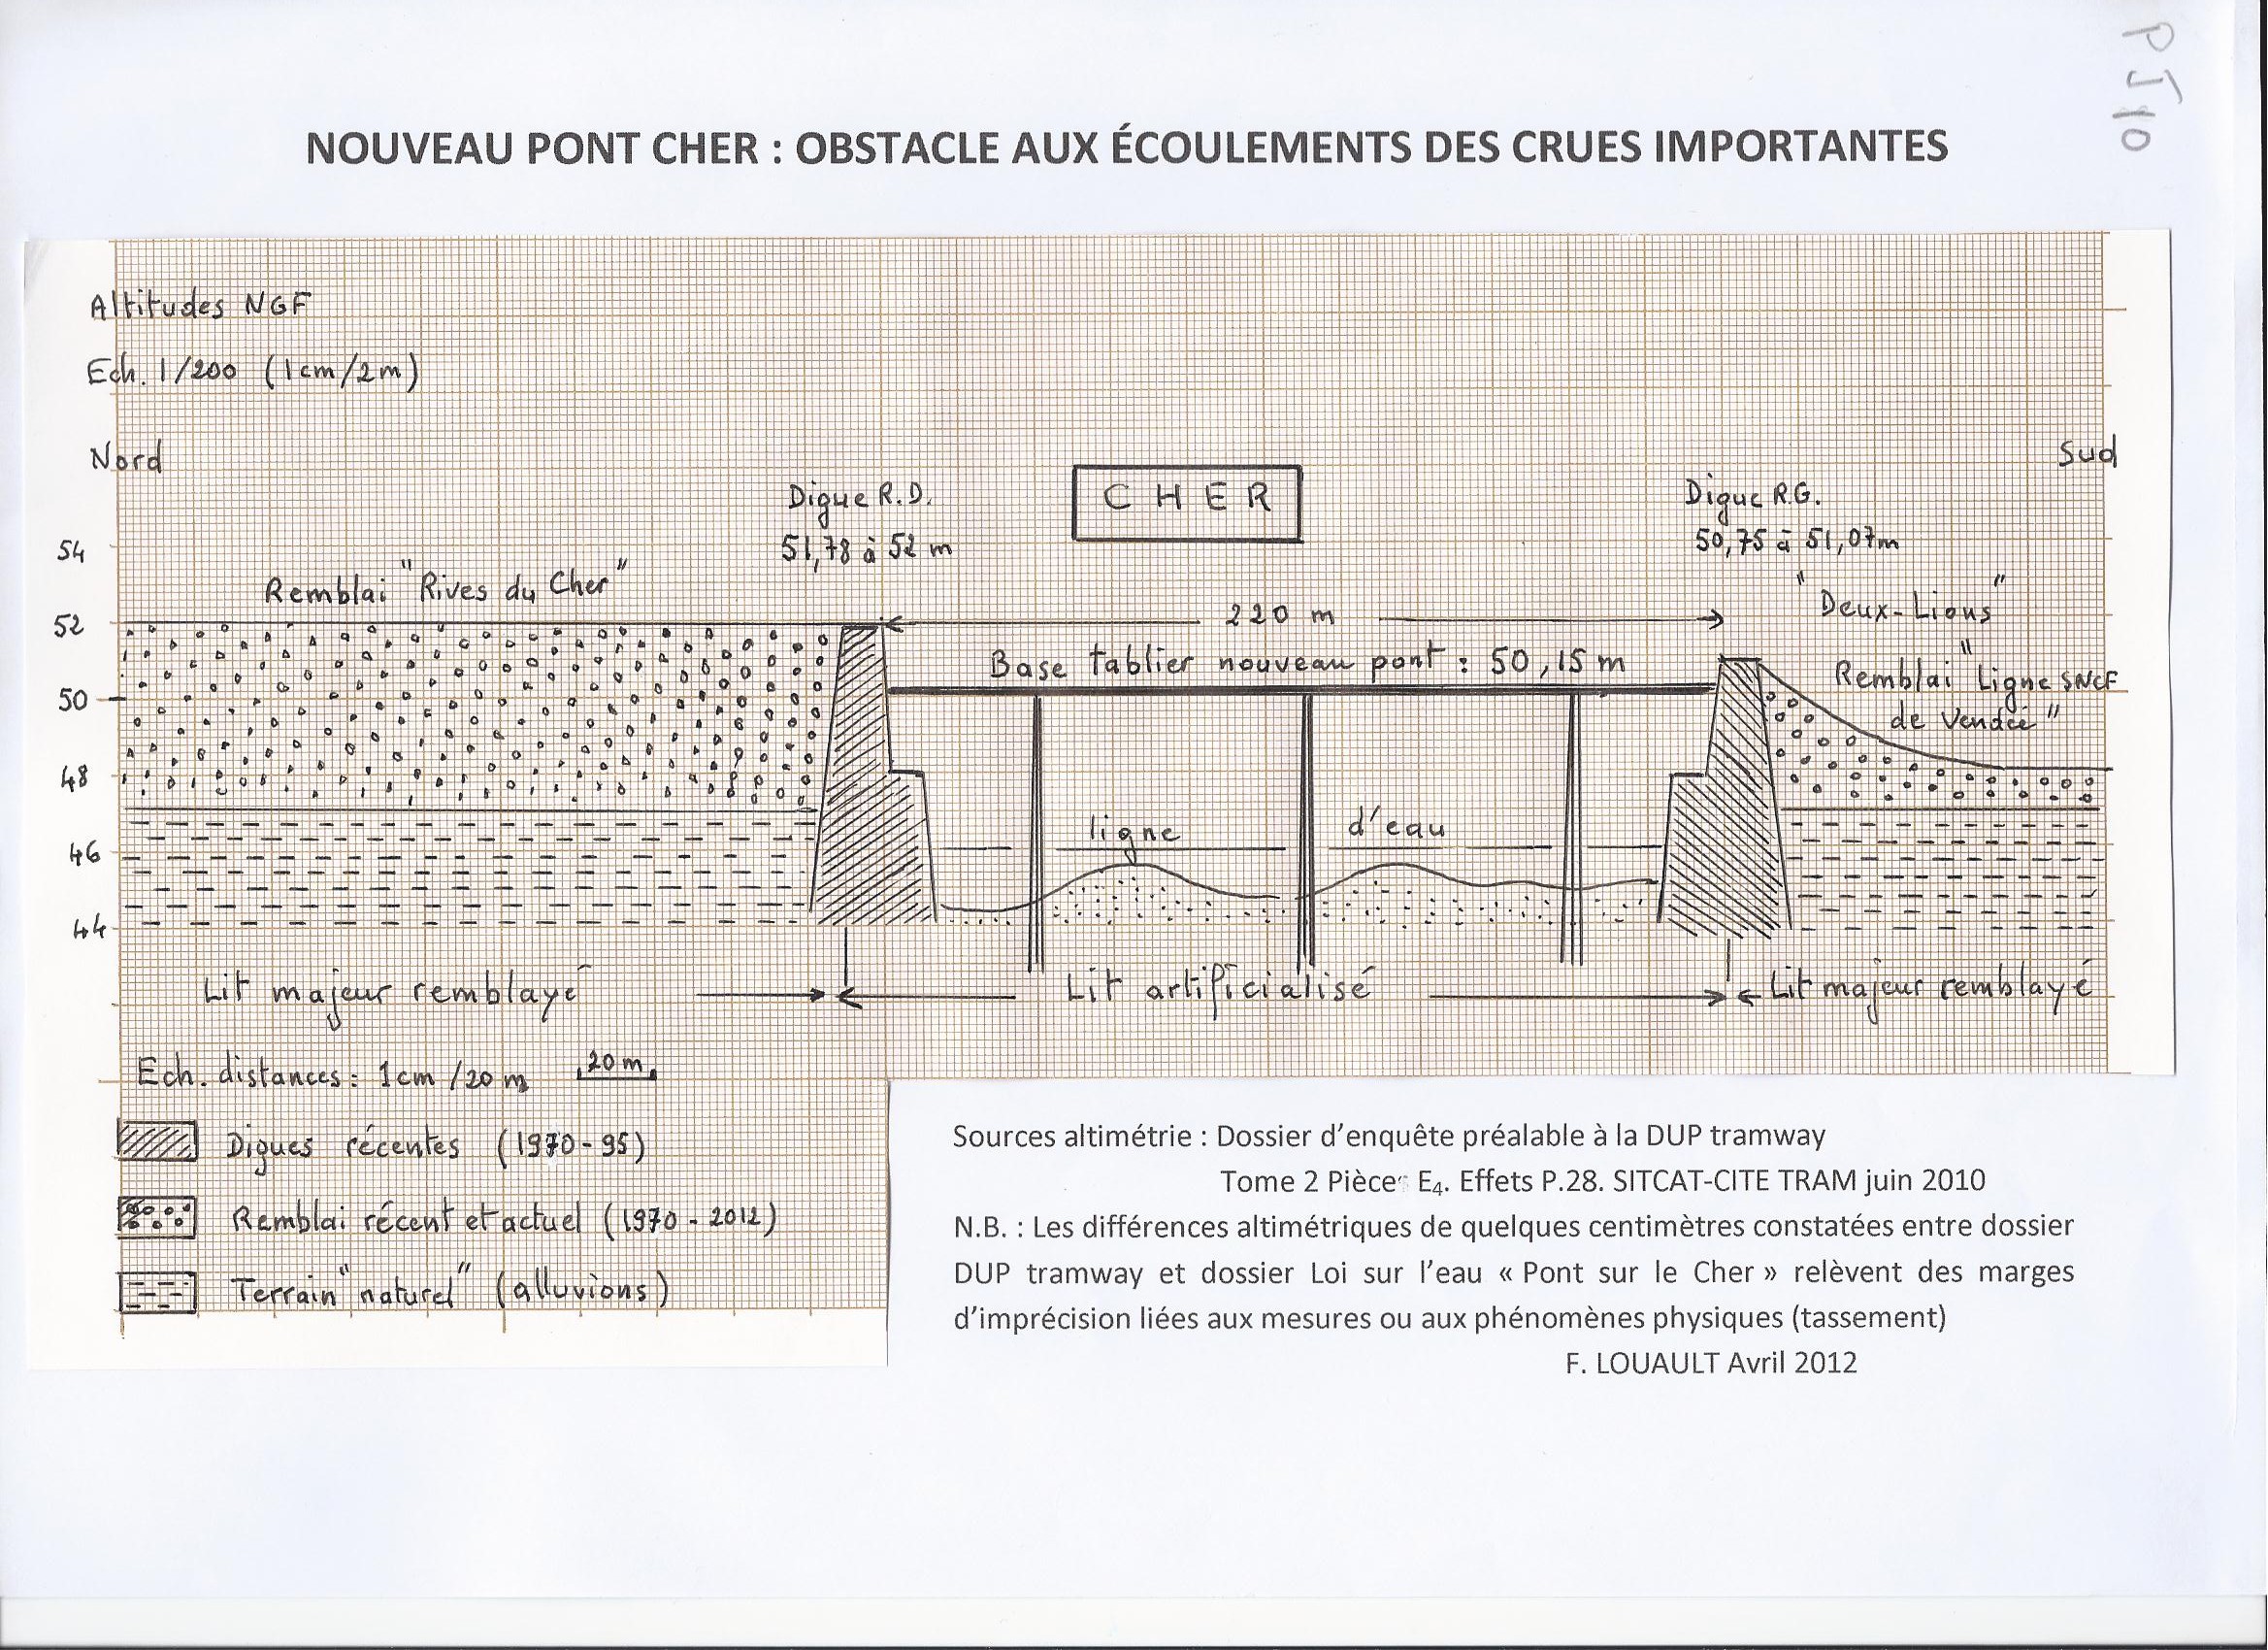 PJ10
NOUVEAU PONT CHER : OBSTACLE AUX ÉCOULEMENTS DES CRUES IMPORTANTES
Altitudes NGF
Ech. 1/200 (1cm/2m)
Nord
Sud
CHER
Digue R.D.
51,78 à 52 m
Digue R.G.
50,75 à 51,07m
54
52
50
48
46
44
Remblai "Rives du Cher"
220 m
"Deux-Lions"
Base tablier nouveau pont : 50,15 m
Remblai "Ligne SNCF
de Vendée"
ligne d'eau
Lit majeur remblayé
Lit artificialisé
Lit majeur remblayé
Ech. distances : 1cm /20 m
20 m
Digues récentes (1970-95)
Remblai récent et actuel (1970-2012)
Terrain "naturel" (alluvions)
Sources altimétrie : Dossier d'enquête préalable à la DUP tramway
Tome 2 Pièce E4. Effets P.28. SITCAT-CITE TRAM juin 2010
N.B. : Les différences altimétriques de quelques centimètres constatées entre dossier
DUP tramway et dossier Loi sur l'eau « Pont sur le Cher » relèvent des marges
d'imprécision liées aux mesures ou aux phénomènes physiques (tassement)
F. LOUAULT Avril 2012